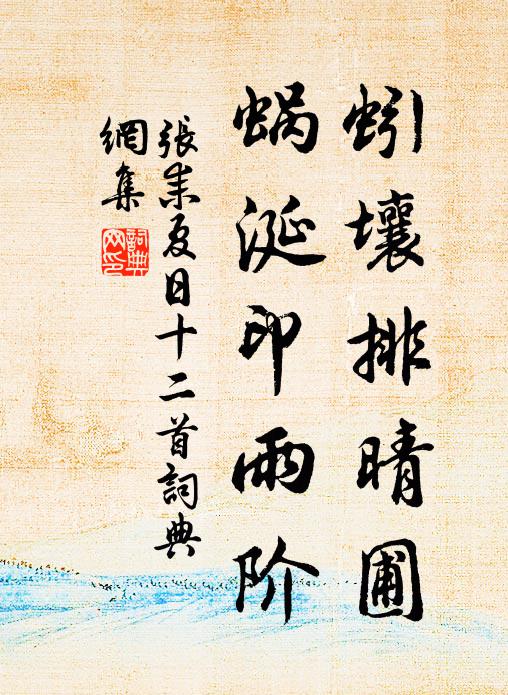 蚓壤排晴圃
蜗涎印雨阶
張耒夏日十二首詞典
網集
詞典
网印